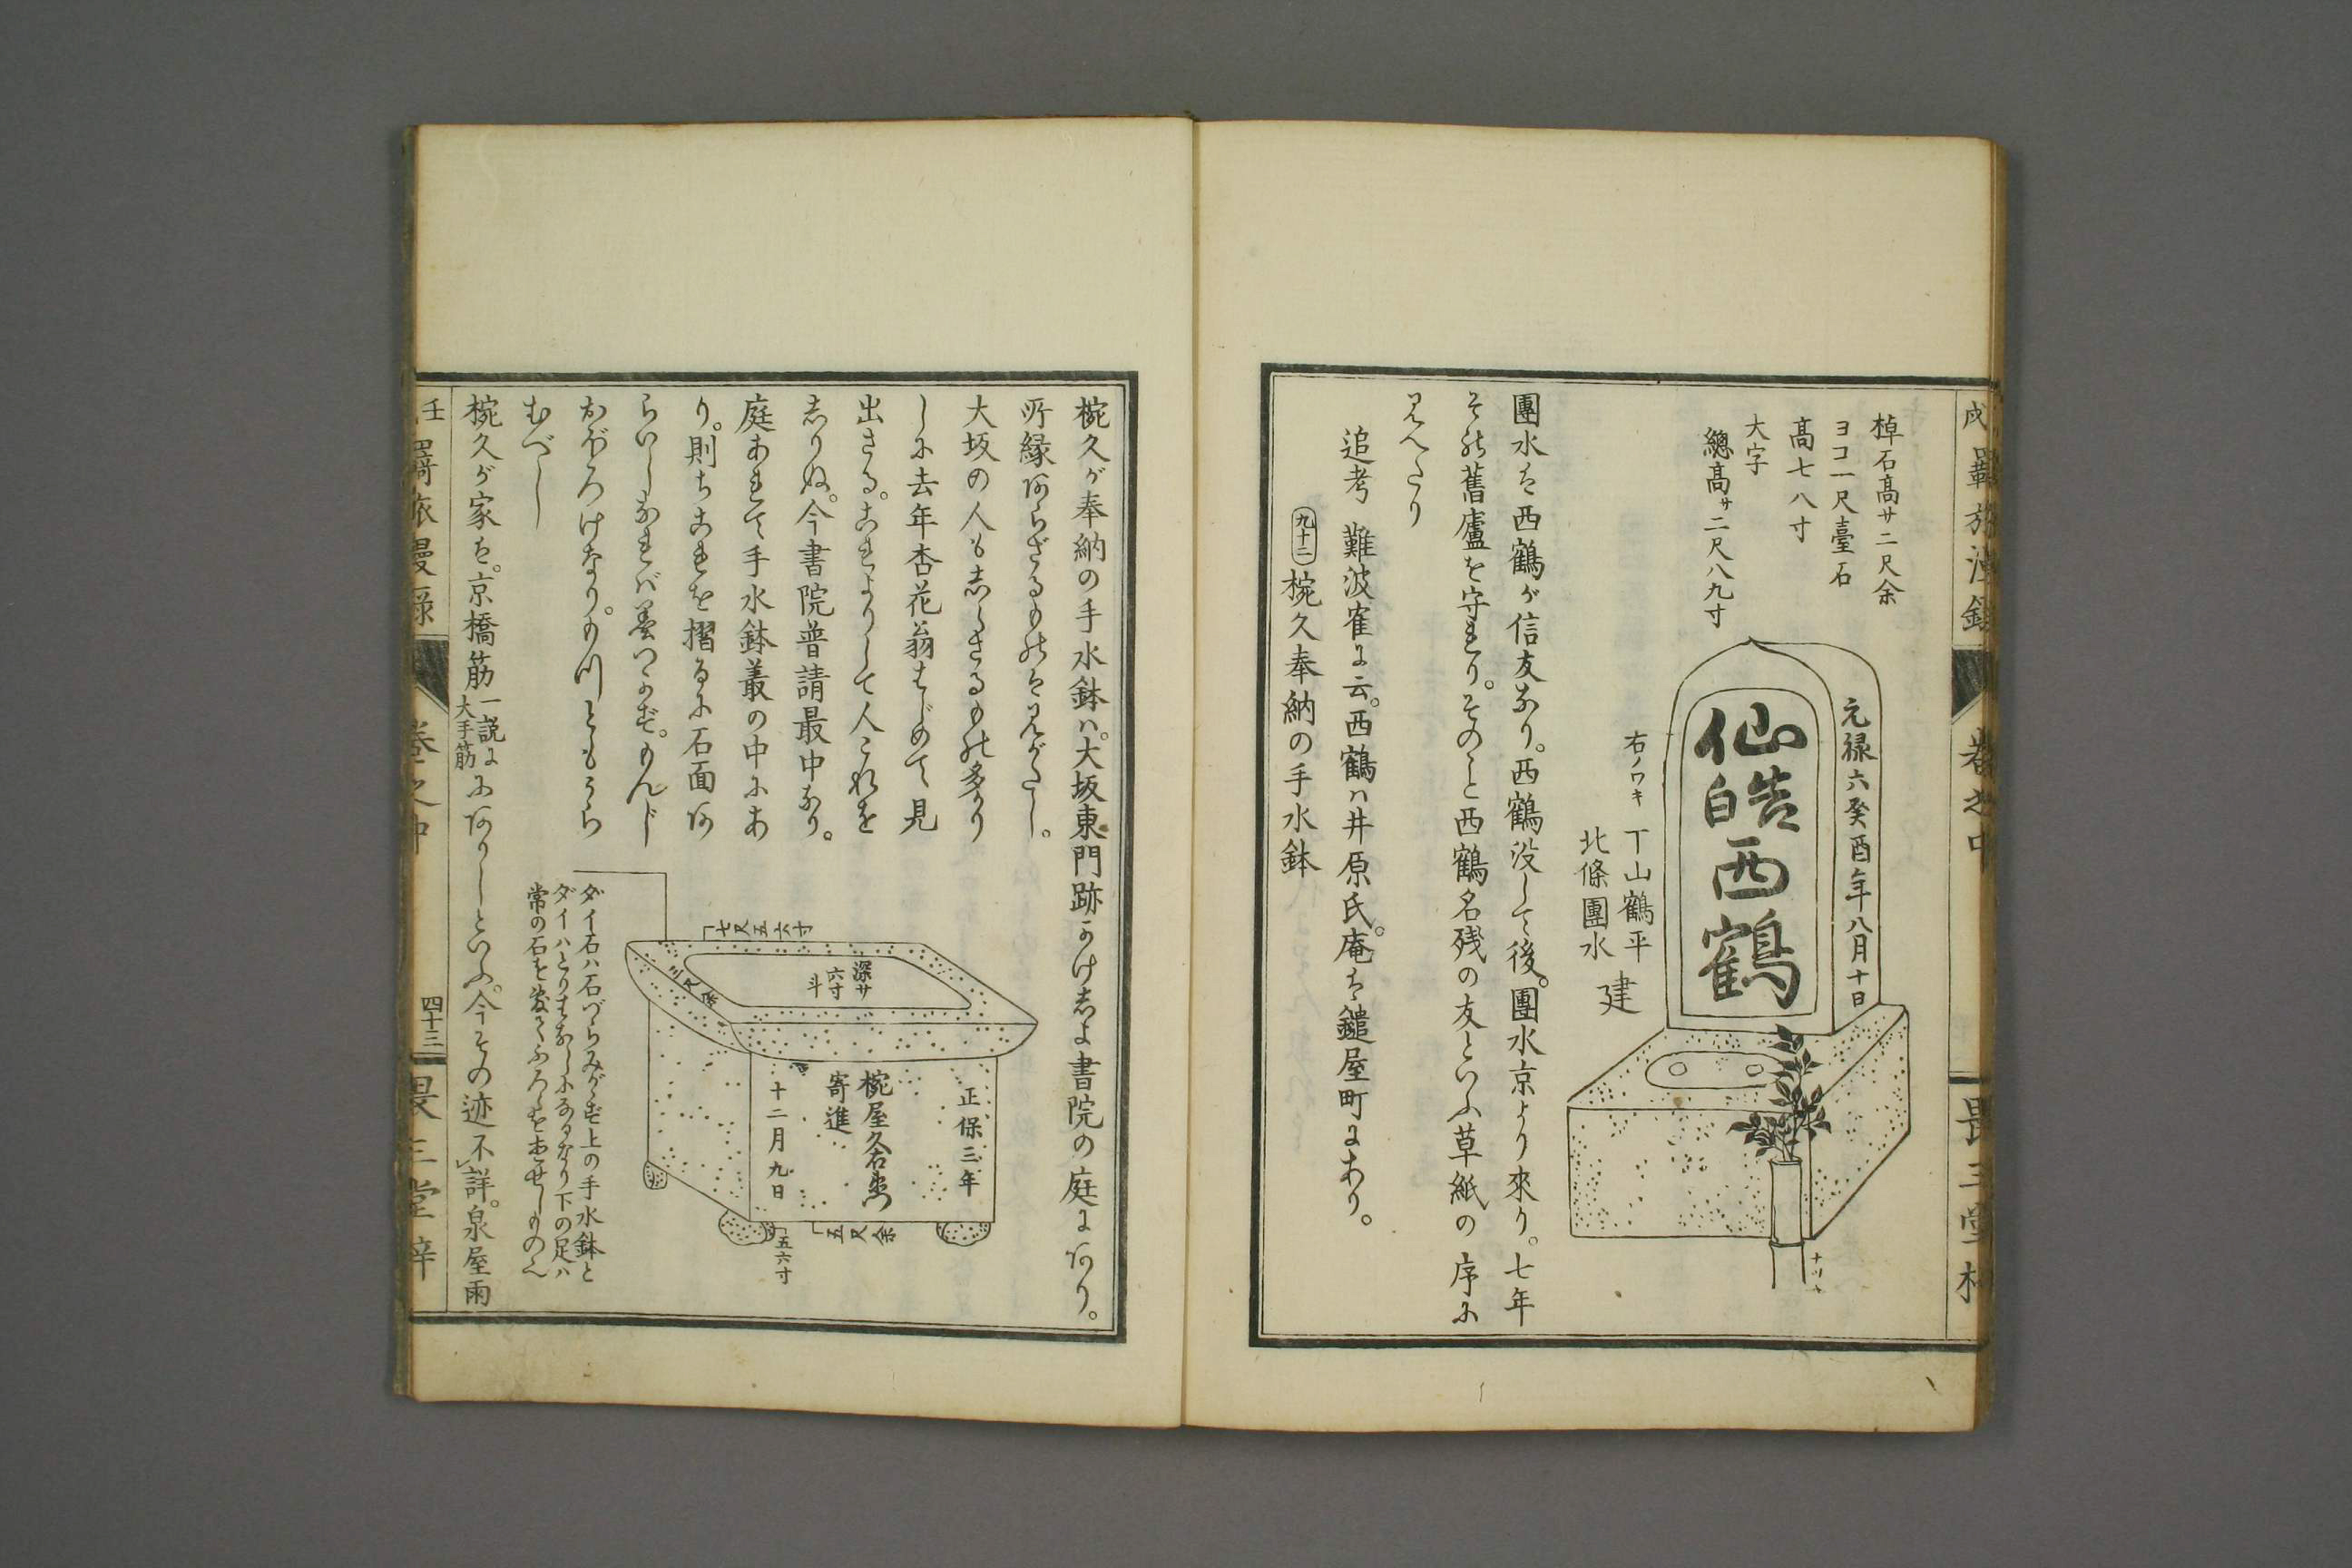 棹石高サ二尺余
ヨコ一尺臺石
高七八寸
大字
總高サ二尺八九寸
元禄六癸酉年八月十日
仙皓西鶴
右ノワキ
下山鶴平
北條團水
建
團水は西鶴が信友なり。西鶴没して後。團水京より來り。七年
その舊廬を守れり。そのこと西鶴名残の友といふ草紙の序に
見へたり
追考 難波雀に云。西鶴ハ井原氏。庵は鑓屋町にあり。
九十二 椀久奉納の手水鉢
椀久が奉納の手水鉢ハ。大坂東門跡かけ志よ書院の庭にあり。
所縁あらざるものは見がたし。
大坂の人も志らさるもの多かり
しに去年杏花翁はじめて見
出さる。これよりして人これを
志りぬ。今書院普請最中なり。
庭あれて手水鉢叢の中にあ
り。則ちこれを摺るに石面あ
らいしなれバ墨つかず。もんじ
おぼろけなり。
むべし
深サ
六寸
斗
正保三年
椀屋久右衛門
寄進
十二月九日
五六寸
ダイ石ハ石づらみがゝず上の手水鉢と
ダイハとりはなしになるなり下の足ハ
椀久が家は。京橋筋一説に大手筋にありしといふ。今その迹不詳。泉屋雨
巻之中
四十三
畏三堂梓